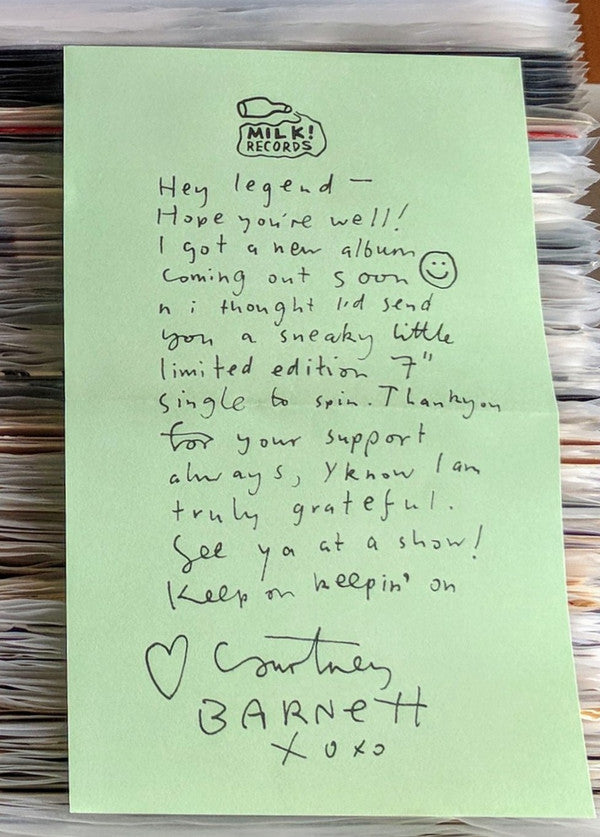 MILK!
RECORDS
Hey legend —
Hope you're well!
I got a new album
coming out soon
n i thought i'd send
you a sneaky little
limited edition 7"
single to spin. Thankyou
for your support
always, y'know I am
truly grateful.
See ya at a show!
Keep on keepin' on
Courtney
BARNETT
xoxo